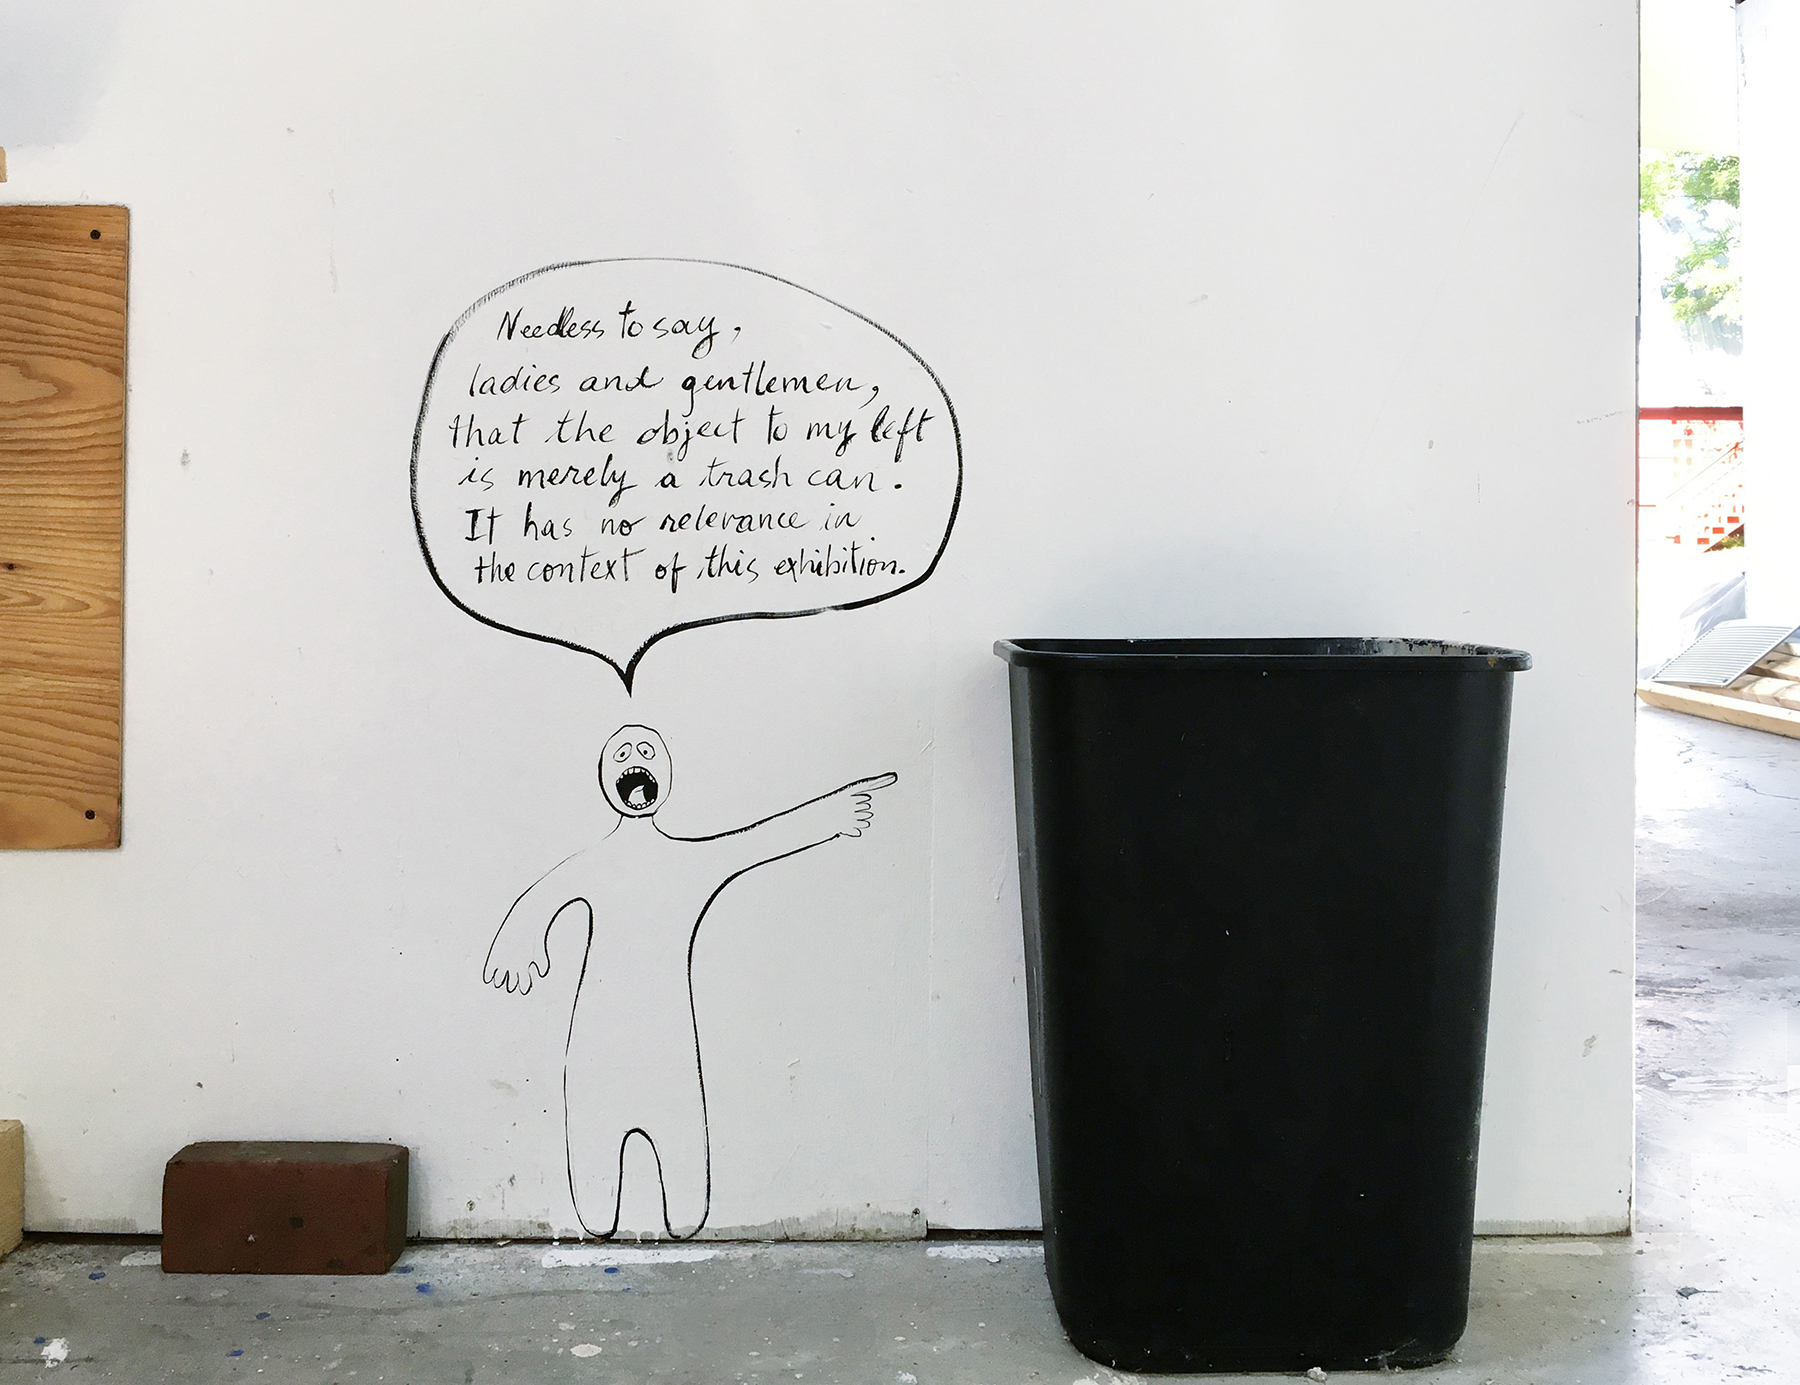 Needless to say,
ladies and gentlemen,
that the object to my left
is merely a trash can.
It has no relevance in
the context of this exhibition.